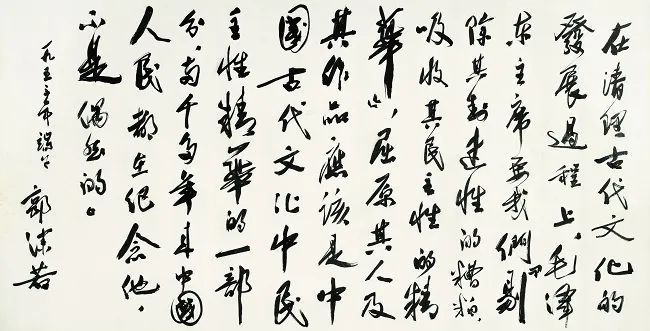 在清理古代文化的
發展過程上，毛澤
东主席要我們剔
除其封建性的糟粕，
吸收其民主性的精
華，屈原其人及
其作品應该是中
國古代文化中民
主性精華的一部
分，两千多年来中國
人民都在纪念他，
不是偶然的。
一九五三年端午
郭沫若